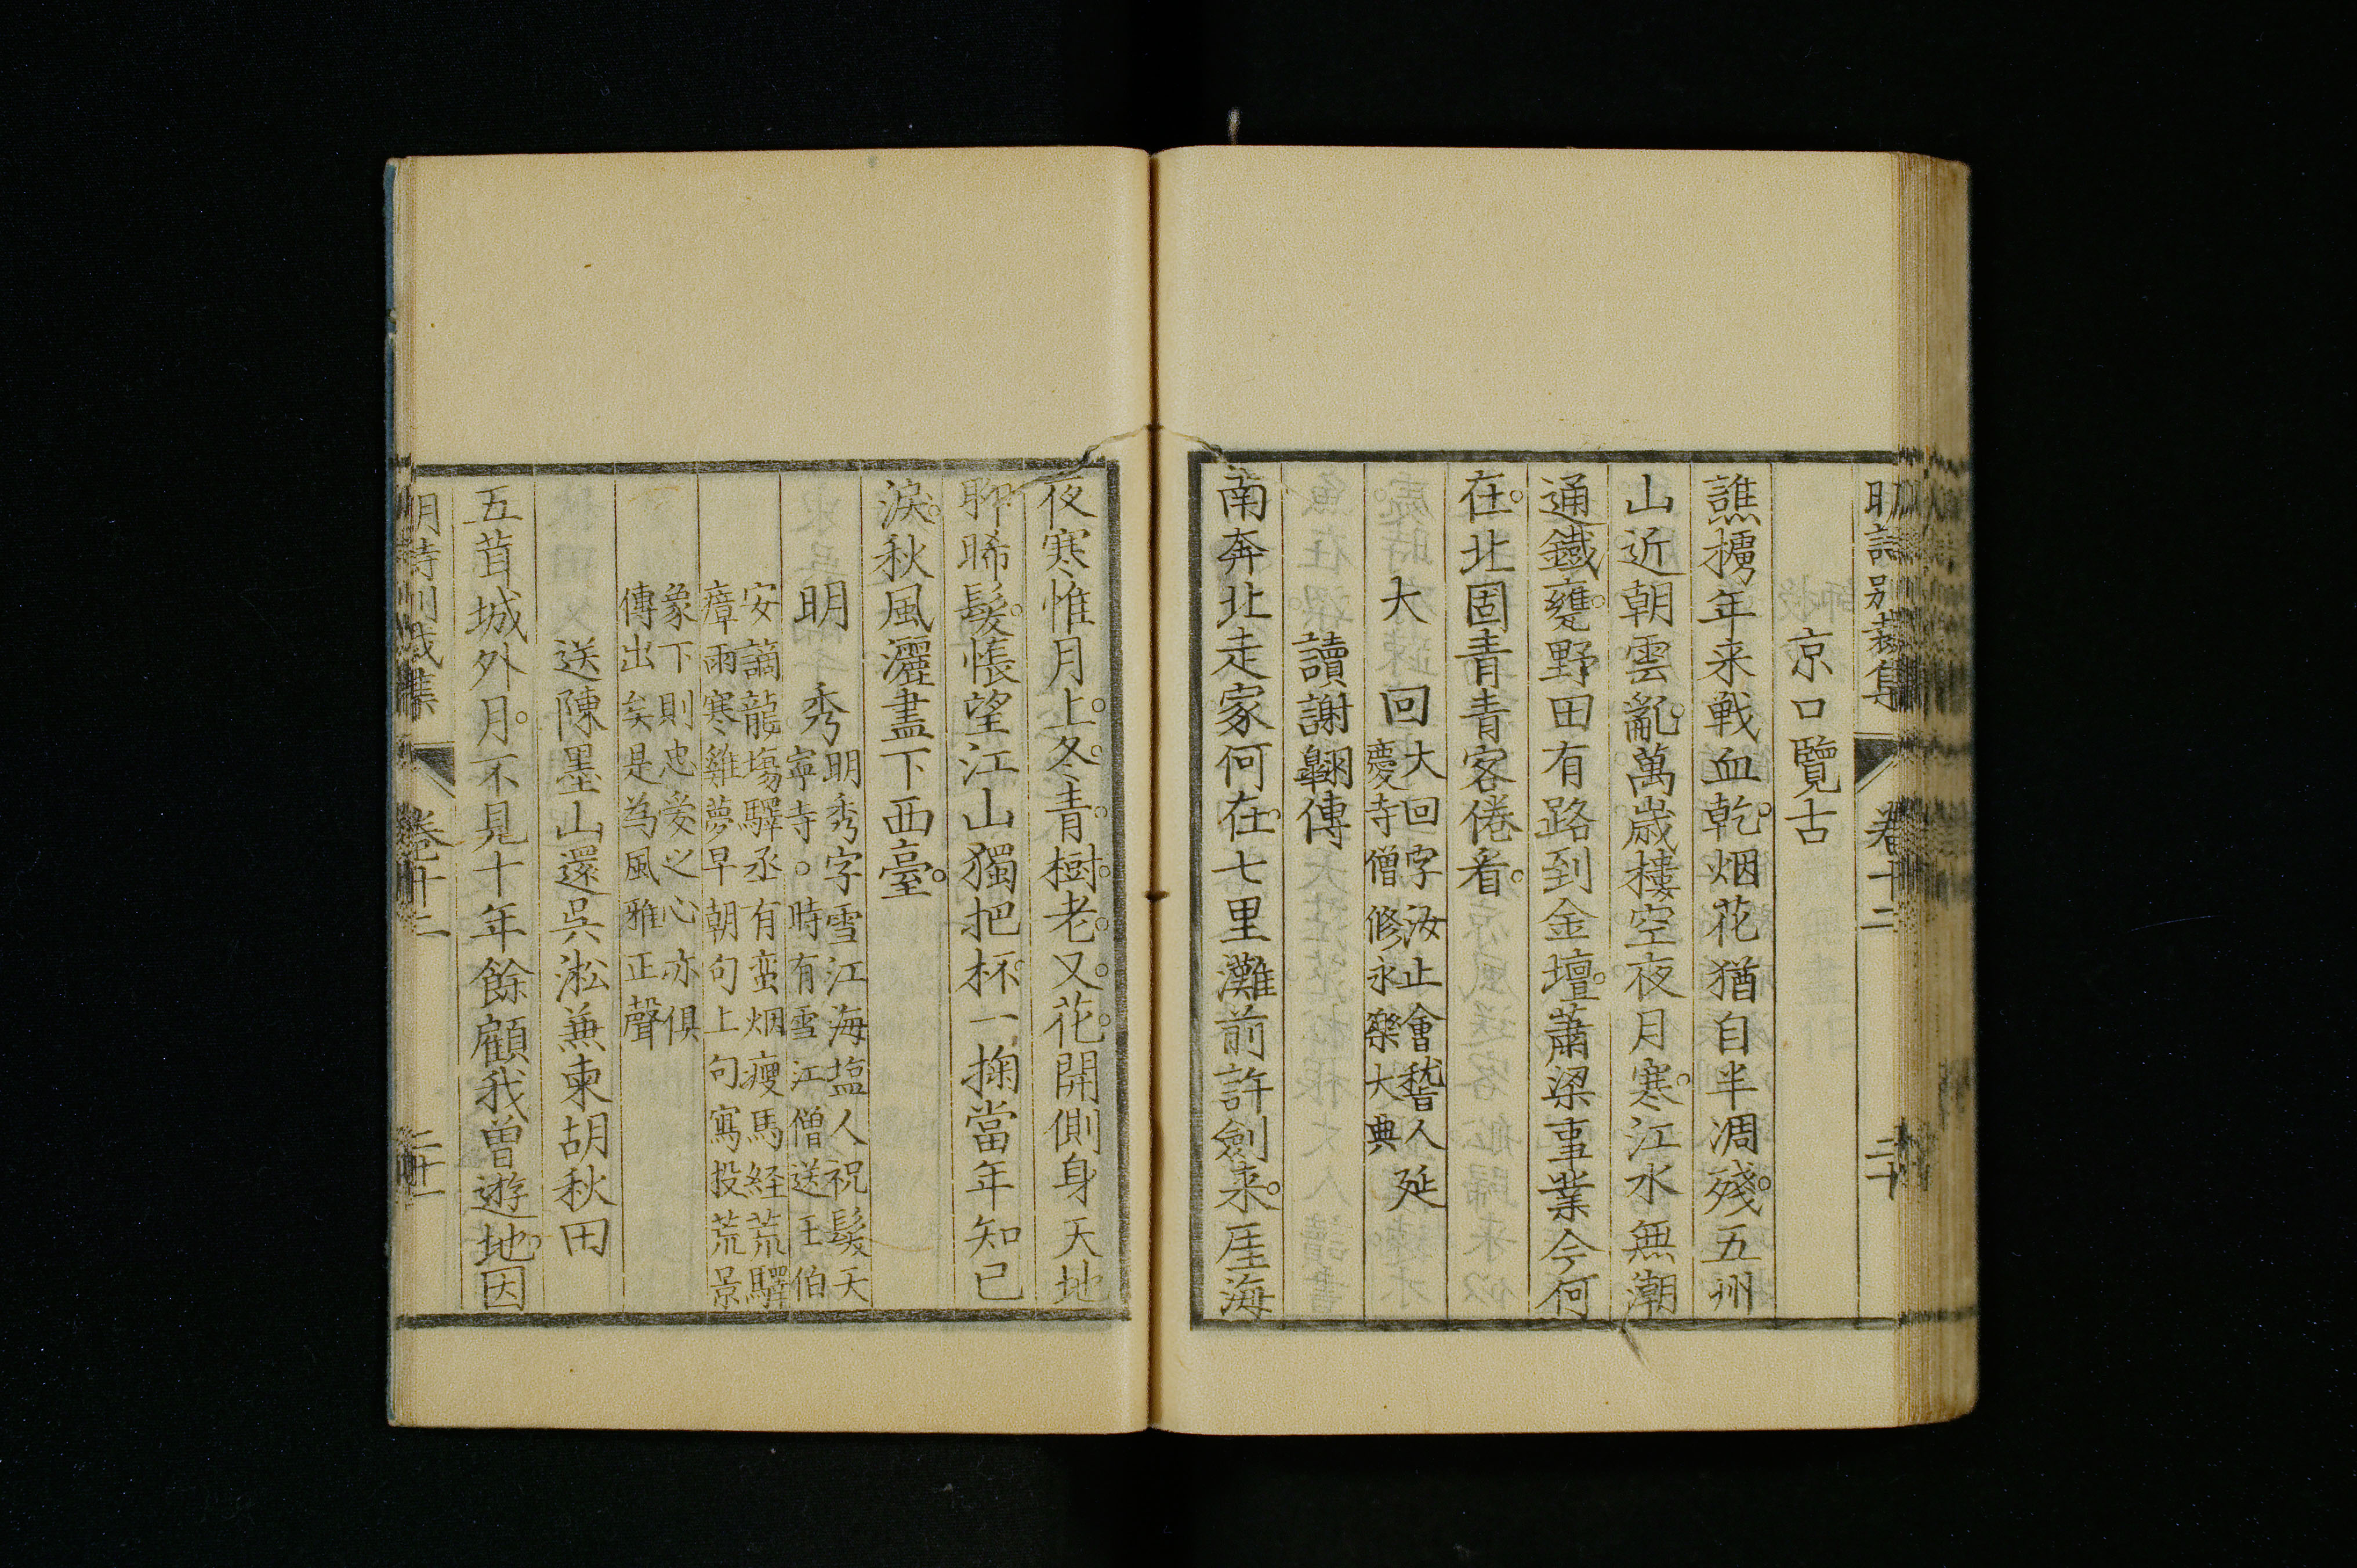 明詩別裁集 卷十二 二十
京口覽古
譙櫓年来戰血乾。烟花猶自半凋殘。五州
山近朝雲亂。萬歲樓空夜月寒。江水無潮
通鐵甕。野田有路到金壇。蕭梁事業今何
在。北固青青客倦看。
大回
大回字汝止會稽人延
慶寺僧修永樂大典
讀謝翺傳
南奔北走家何在。七里灘前許劍来。厓海
夜寒惟月上。冬青樹老又花開側身天地
聊晞髮。悵望江山獨把杯。一掬當年知已
淚。秋風灑盡下西臺。
明秀
明秀字雪江海塩人祝髮天
寧寺。時有雪江僧送王伯
安謫龍塲驛丞有蛮烟瘦馬経荒驛
瘴雨寒雞夢早朝句上句寫投荒景
象下則忠爱之心亦俱
傳出矣是為風雅正聲
送陳墨山還吳淞兼柬胡秋田
五茸城外月。不見十年餘顧我曽遊地。因
明詩別裁集 卷十二 二十一